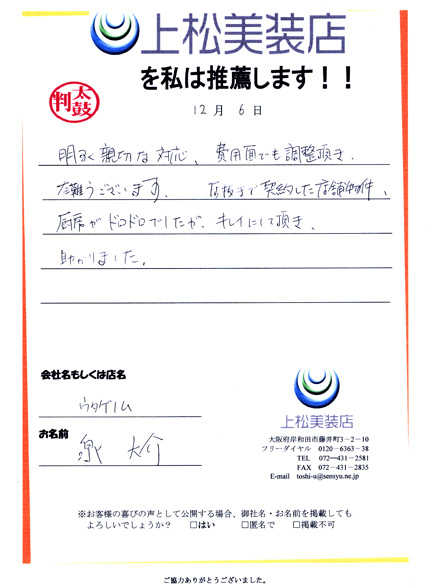 上松美装店
を私は推薦します！！
太鼓判
12月 6日
明るく親切な対応、費用面でも調整頂き、
有難うございます。 居抜きで契約した店舗物件、
厨房がドロドロでしたが、キレイにして頂き、
助かりました。
会社名もしくは店名
ウタゲノム
お名前
泉 大介
上松美装店
大阪府岸和田市藤井町3－2－10
フリーダイヤル 0120－6363－38
TEL 072―431－2581
FAX 072－431－2835
E-mail toshi-u@sensyu.ne.jp
※お客様の喜びの声として公開する場合、御社名・お名前を掲載しても
よろしいでしょうか？ □はい □匿名で □掲載不可
ご協力ありがとうございました。